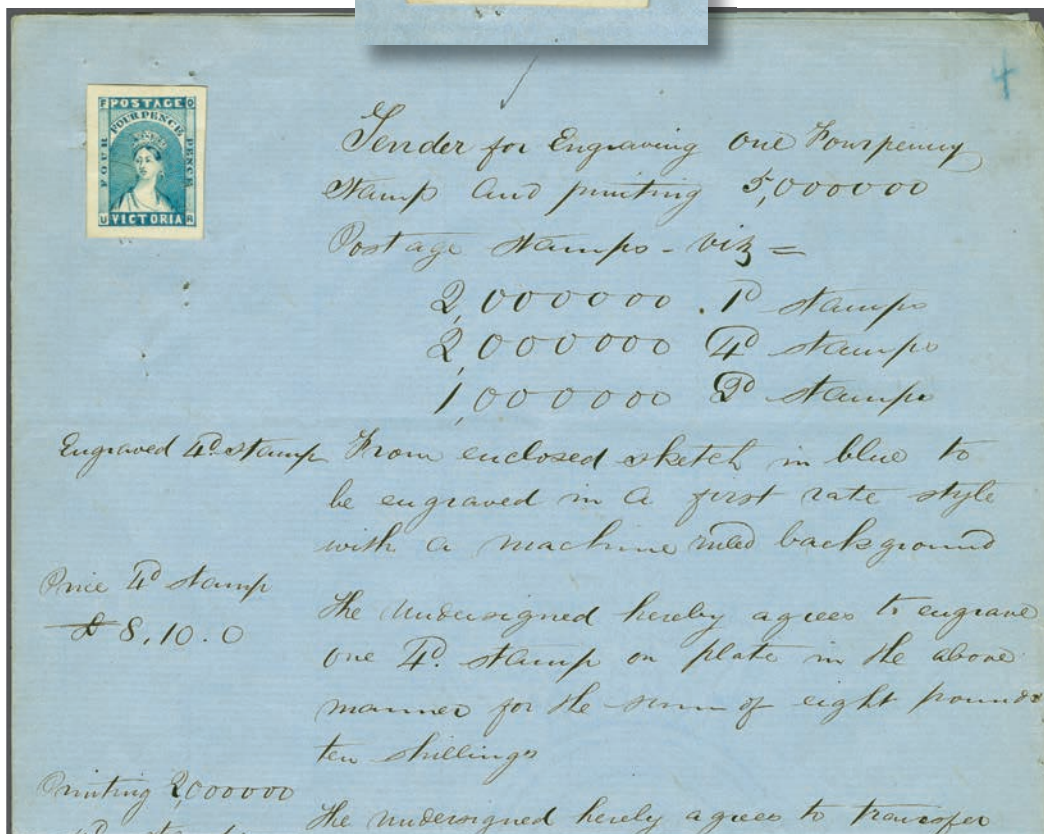 4
POSTAGE
FOUR PENCE
FOUR
PENCE
VICTORIA
F
O
U
R
Tender for Engraving One Fourpenny
Stamp and printing 5,000000
Postage Stamps - viz =
2,000000 . 1d Stamps
2,000000 4d Stamps
1,000000 2d Stamps
Engraved 4d. Stamp From enclosed sketch in blue to
be engraved in a first rate style
with a machine ruled background
Price 4d Stamp
£8.10.0
The Undersigned hereby agrees to engrave
one 4d. Stamp on plate in the above
manner for the sum of eight pounds
ten shillings
Printing 2,000000
The undersigned hereby agrees to transfer